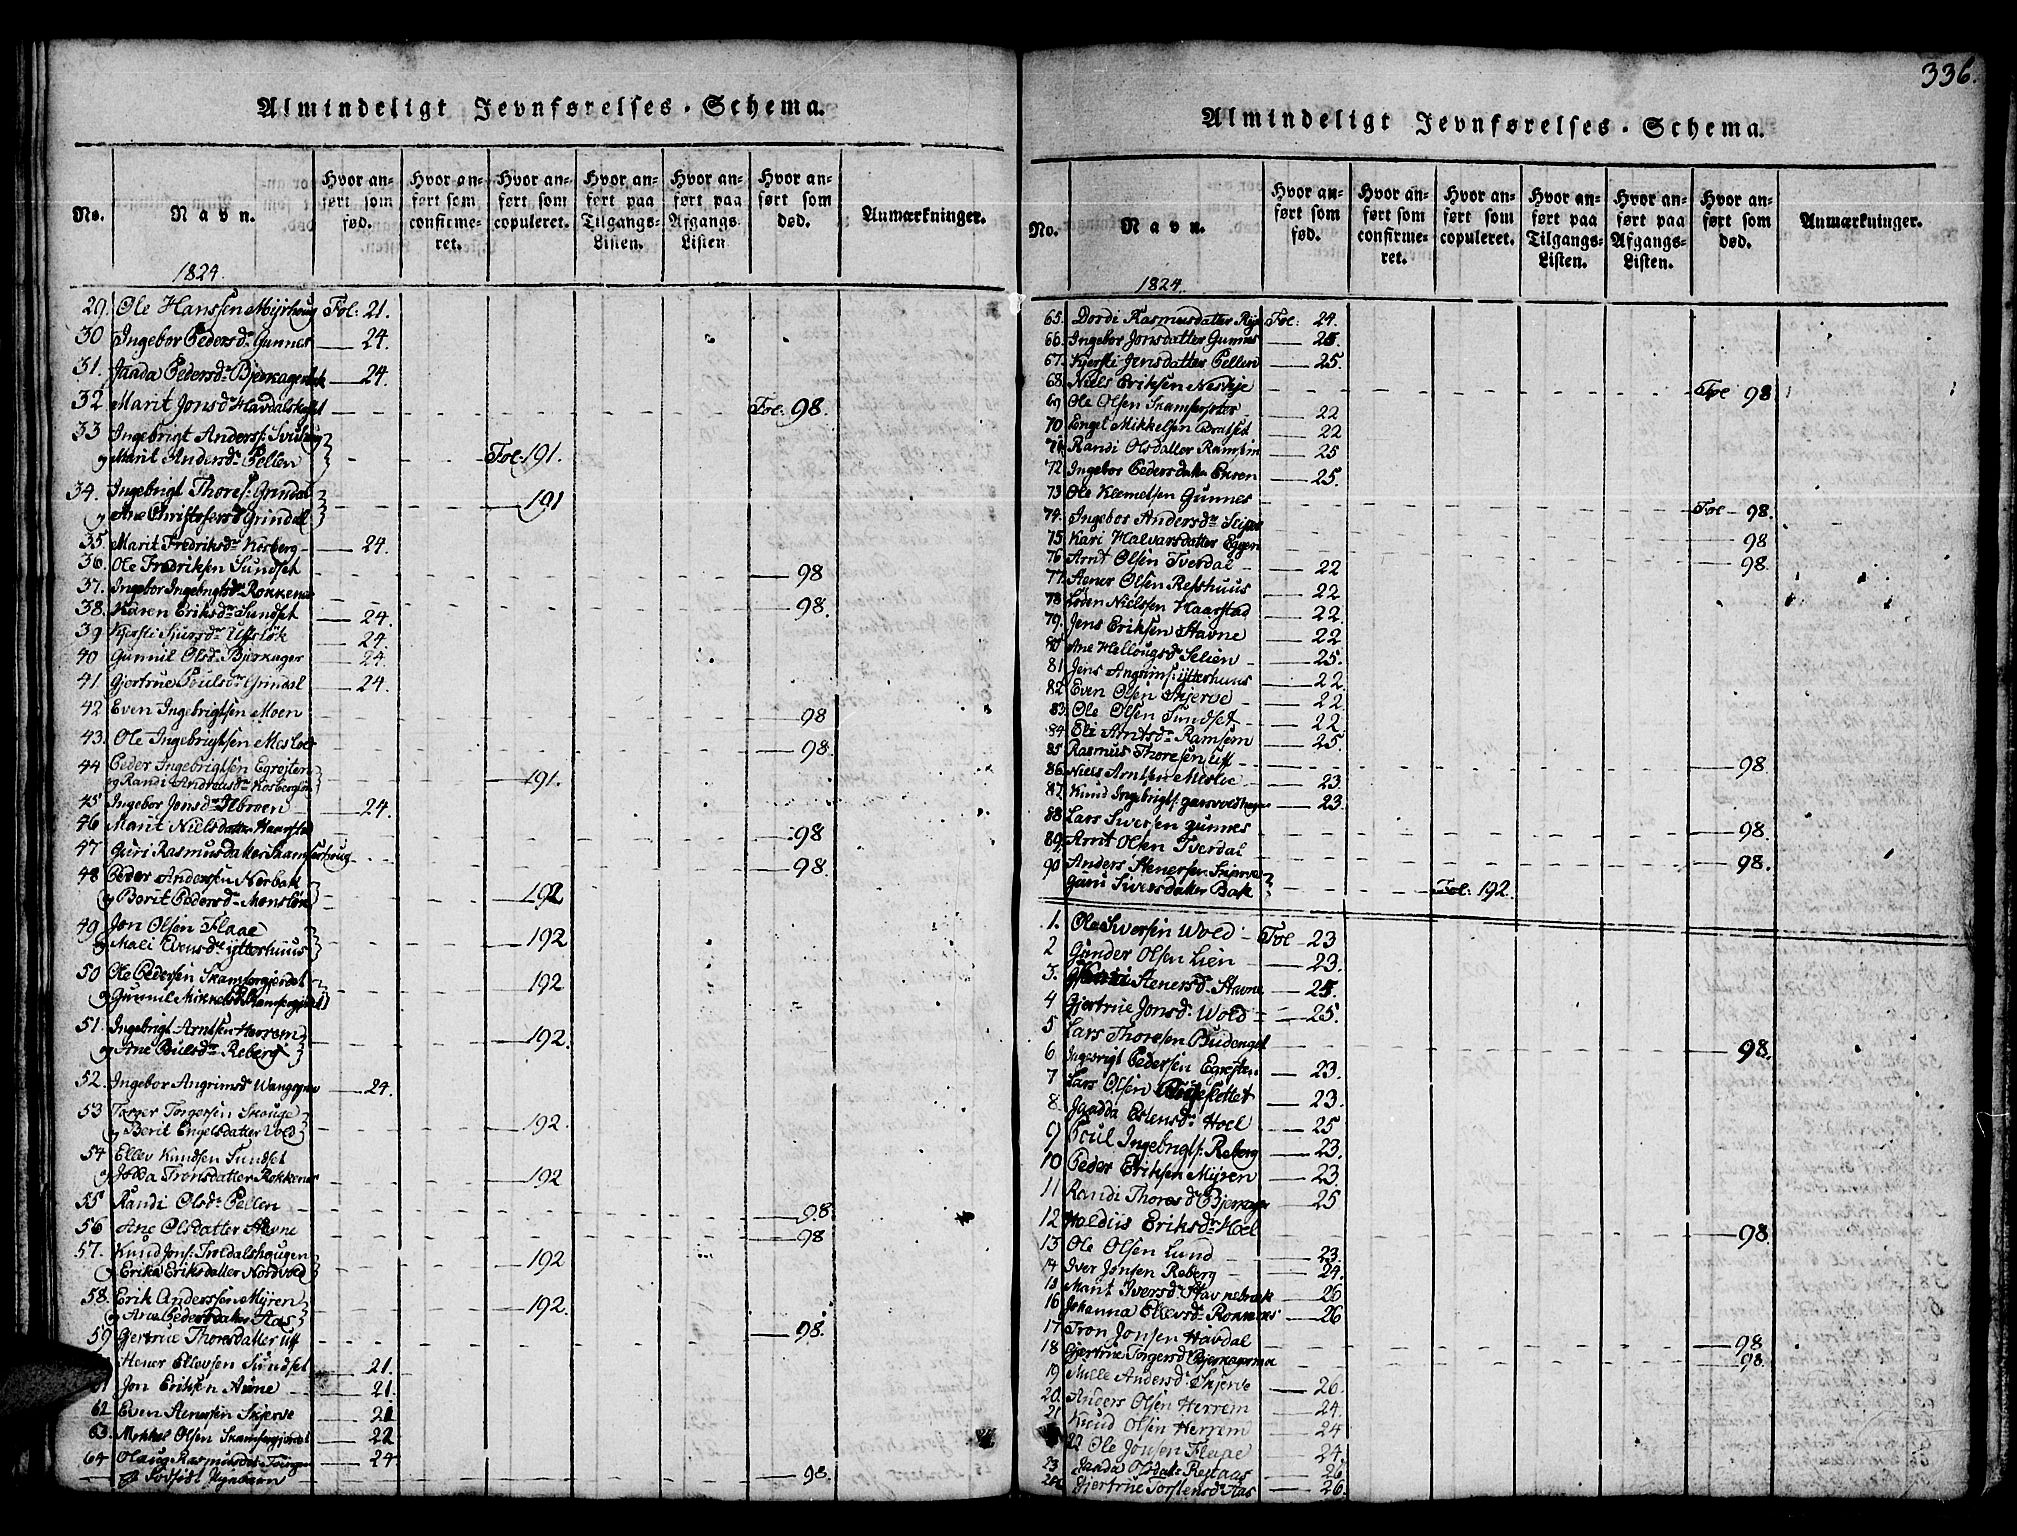 336.
Almindeligt Jevnførelses-Schema.
No.
Navn.
Hvor anført som fød.
Hvor anført som confirmeret.
Hvor anført som copuleret.
Hvor anført paa Tilgangs-Listen.
Hvor anført paa Afgangs-Listen
Hvor anført som død.
Anmærkninger.
1824.
29. Ole Hanssen Myrhoug Fol: 21.
30 Ingebor Pedersdr Gunnes 24.
31. Jaada Pedersdr 24.
32 Marit Jonsdr Fol: 98.
33 Ingebrigt Anderss:
og Marit Andersdr Pellen Fol: 191.
34. Ingebrigt Thores: Grindal
og Ane Grindal 191
35. Marit Fredriksdr Kosberg 24.
36. Ole Fredriksen Sundset 98
37. Ingebor Ingebrigtsdr Rokkenes 98.
38. Karen Eriksdr Sundset 24.
39 Kjersti Sjursdr 24
40 Gunnil Olsdr Bjerkager 24.
41. Gjertrue Poulsdr Grindal 24.
42 Even Ingebrigtsen Moen 98
43. Ole Ingebrigtsen 98.
44 Peder Ingebrigtsen
og Randi 191.
45 Ingebor Jonsdr Ilbroen 24.
46 Marit Nielsdatter Haarstad 98
47 Guri Rasmusdatter 98.
48 Peder Andersen Norbak
og Berit Pedersdr 192
49 Jon Olsen Flaae
og Mali Evensdr ytterhuus 192
50 Ole Pedersen Skamfergjerdet
og Gunnil Mikkelsdr 192
51. Ingebrigt Arntsen Herrem
og Ane Reberg 192.
52. Ingebor Angrimsdr 24.
53 Torger Torgersen Skouge
og Berit Engelsdatter Vold 192.
54 Ellev Knudsen Sundset
og Tronsdatter Rokkenes 192
55 Randi Olsdr Pellen 98
56 Ane Olsdatter Stavne 98
57. Knud Jons: Troldalshougen
og Erika Eriksdatter Nordvold 192
58. Erik Anderssen Myren
og Ane Pedersdatter Aas 192.
59 Gjertrue Thoresdatter Uff 98.
Stener Ellevsen Sundset 21.
61 Jon Eriksen Aune 21.
62 Even Stenersen Skjerve 21
63. Mikkel Olsen Skamfergjerdet 22
64 Olaug Rasmusdatter 24
Et Dødfødt Pigebarn 98.
Almindeligt Jevnførelses-Schema.
No.
Navn.
Hvor anført som fød.
Hvor anført som confirmeret.
Hvor anført som copuleret.
Hvor anført paa Tilgangs-Listen.
Hvor anført paa Afgangs-Listen.
Hvor anført som død.
Anmærkninger.
1824.
65. Dordi Rasmusdatter Fol: 24.
66. Ingebor Jonsdatter Gunnes 25.
67. Kjersti Jensdatter Pellen 25.
68. Niels Eriksen Fol 98
69 Ole Olsen 22
70 Engel Mikkelsen 22
71 Randi Olsdatter Ramsem 25
72 Ingebor Pedersdatter 25.
73 Ole Klemetsen Gunnes Fol 98.
74. Ingebor Andersdr 98
75 Kari Halvarsdatter Eggen 98.
76 Arnt Olsen Tverdal 22
77. Stener Olsen Refshuus 22
78 Loden Nielssen Haarstad 22.
79. Jens Eriksen Stavne 22
80 Ane Hellougsdr 25.
81 Jens Angrims: ytterhuus 22
82. Even Olsen Skjerve 22
83. Ole Olsen Sundset 22
84. Eli Arntsdr Ramsem 25
85 Rasmus Thoresen Uff 98.
86. Niels Arntsen 23.
87. Knud Ingebrigts: 23.
88 Lars Sivertsen Gunnes 98.
89. Arnt Olsen Tverdal 98.
90 Anders Stenersen Skjerve
Guru Siversdatter Bak Fol: 192.
1. Ole Siversen Wold Fol 23
2 Gunder Olsen Lien 23.
3. Stenersd: Stavne 25.
4 Gjertrue Jonsd: Wold 25.
5 Lars Thoresen 98.
6 Ingebrigt Pedersen 23.
7 Lars Olsen 23.
8. Jaadda Estensd: Hoel 25
9 Poul Ingebrigts: Reberg 23.
10 Peder Eriksen Myren 23.
11 Randi Thoresd: Bjerkager 25
12 Eriksdr Hoel 98.
13 Ole Olsen Lund 23.
14 Iver Jonsen Reberg 24.
15 Marit Iversdr Stavnebræk 26
16 Johanna Ellevsdr Rokkenes 26
17 Tron Jonsen Havdal 98
18 Gjertrue Torgersd 98.
19 Mille Andersd: Skjerve 26.
20. Anders Olsen Herrem 24.
21. Knud Olsen Herrem 24
22 Ole Jonsen Flaae 24.
23 Jaada 26
24 Gjertrue Torstensdr Aas 26.